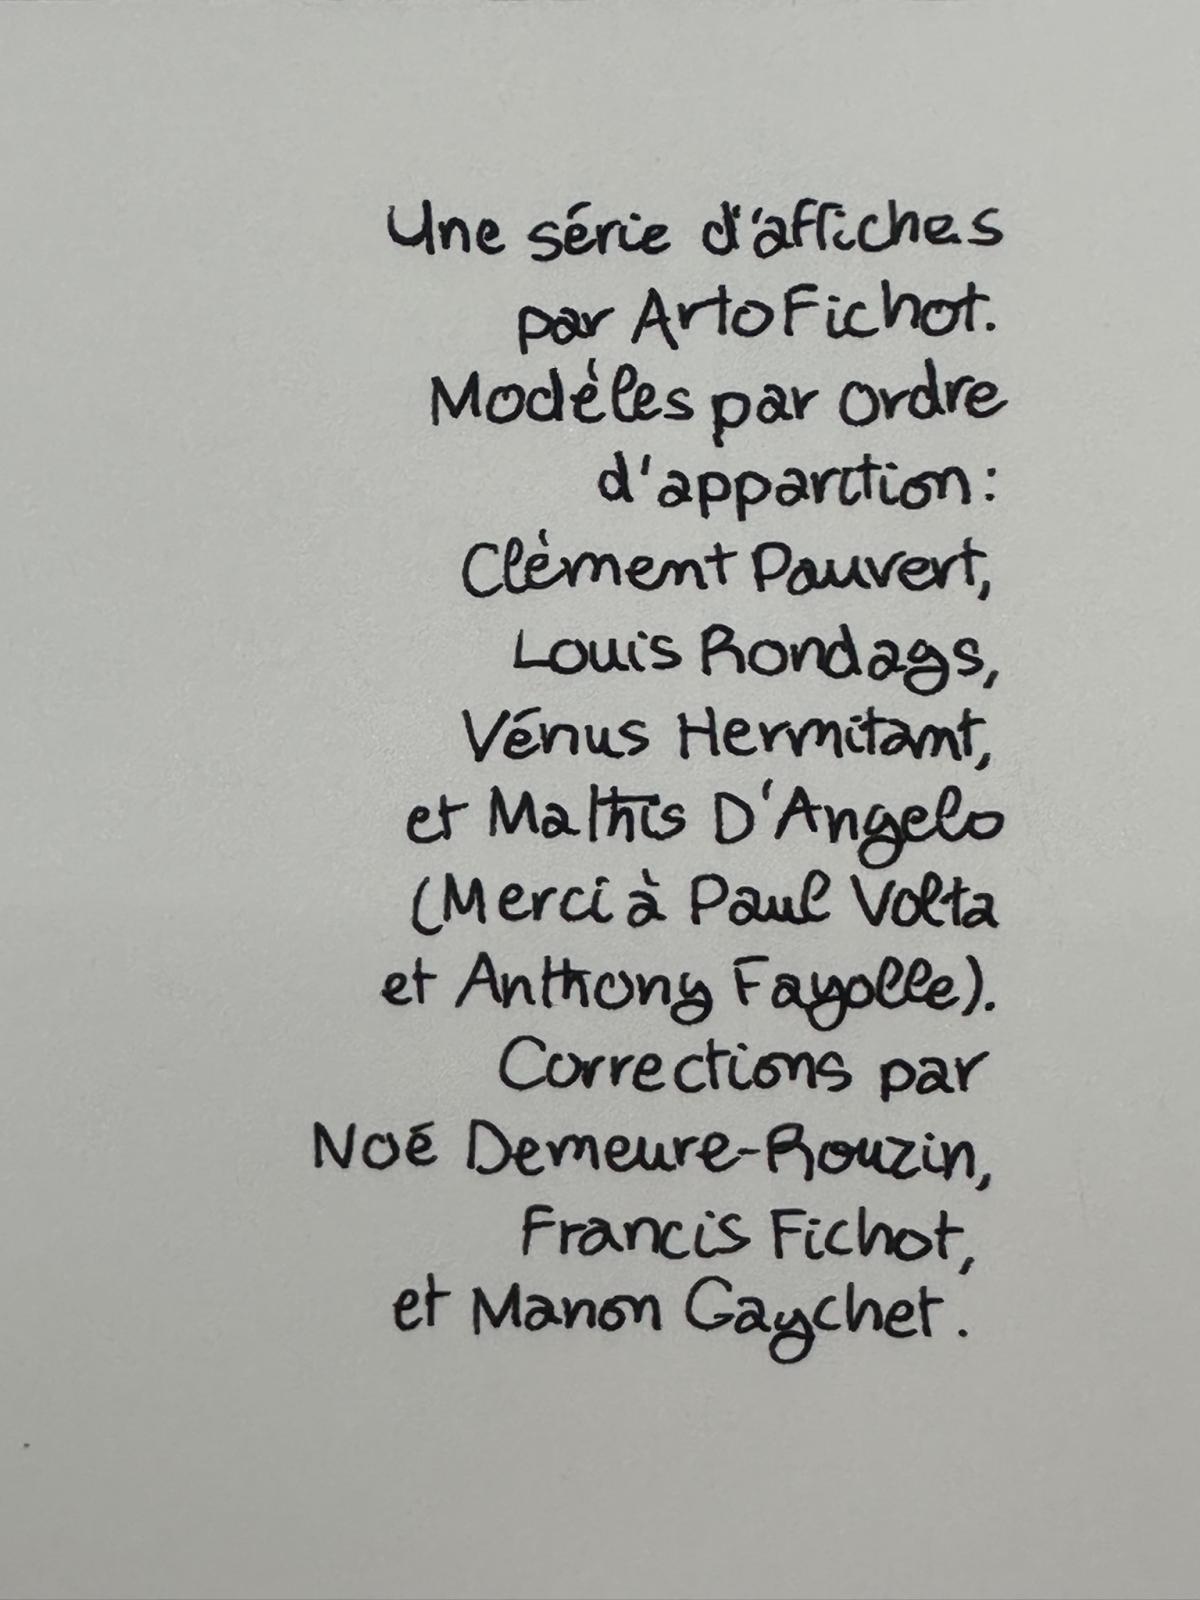 Une série d'affiches
par Arto Fichot.
Modèles par ordre
d'apparition :
Clément Pauvert,
Louis Rondags,
Vénus Hermitant,
et Mathis D'Angelo
(Merci à Paul Volta
et Anthony Fayolle).
Corrections par
Noé Demeure-Rouzin,
Francis Fichot,
et Manon Gaychet.